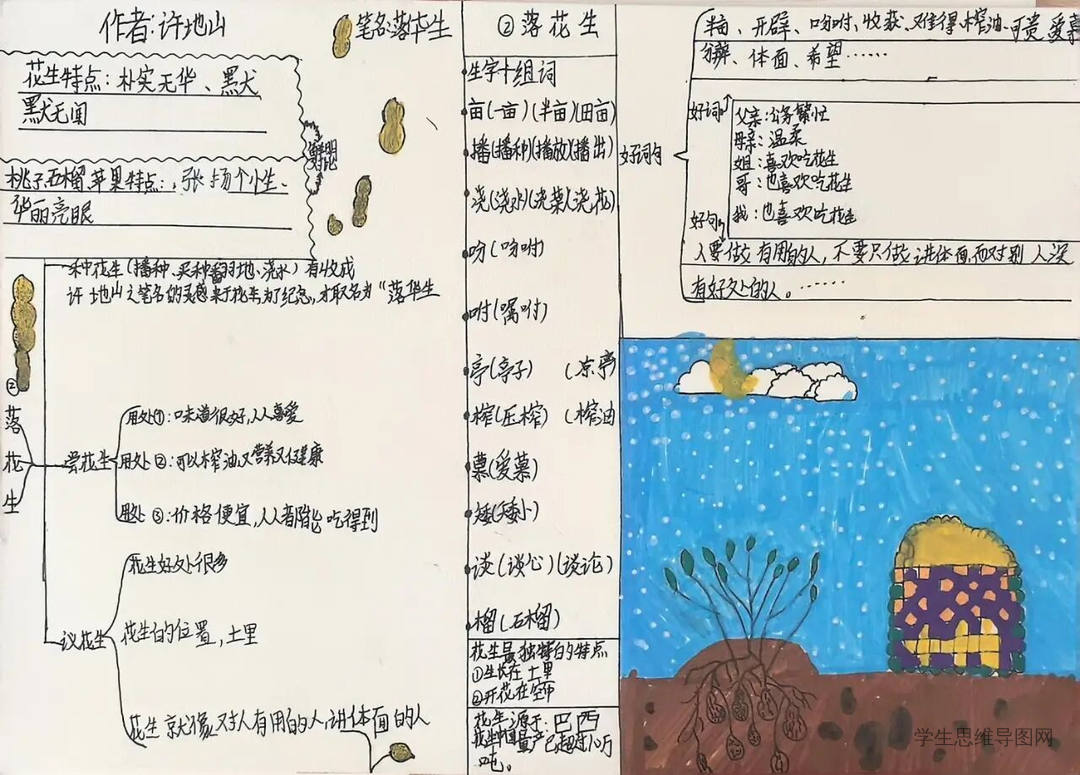 作者:许地山
笔名:落华生
花生特点:朴实无华、默
默无闻
鲜明对比
桃子、石榴、苹果特点:张扬个性、
华丽亮眼
②落花生
种花生(播种、买种、翻地、浇水)有收成
才取名为"落华生
尝花生
用处①:味道很好,人人喜爱
用处②:可以榨油,又营养又健康
用处③:价格便宜,人人都能吃得到
议花生
花生好处很多
花生的位置,土里
花生就像对人有用的人,讲体面的人
②落花生
生字十组词
亩(一亩)(半亩)(田亩)
播(播种)(播放)(播出)
浇(浇水)(浇菜)(浇花)
吩(吩咐)
咐(嘱咐)
亭(亭子)(凉亭
榨(压榨)(榨油
慕(爱慕)
矮(矮小)
谈(谈心)(谈论)
榴(石榴)
花生最独特的特点
①生长在土里
②开花在空中
花生源于巴西
吨。
好词句
好词
半亩、开辟、吩咐、收获、难得、榨油、可贵、爱慕
分辨、体面、希望……
父亲:公务繁忙
母亲:温柔
姐:喜欢吃花生
哥:也喜欢吃花生
我:也喜欢吃花生
好句
人要做有用的人,不要只做讲体面,而对别人没
有好处的人。……
学生思维导图网